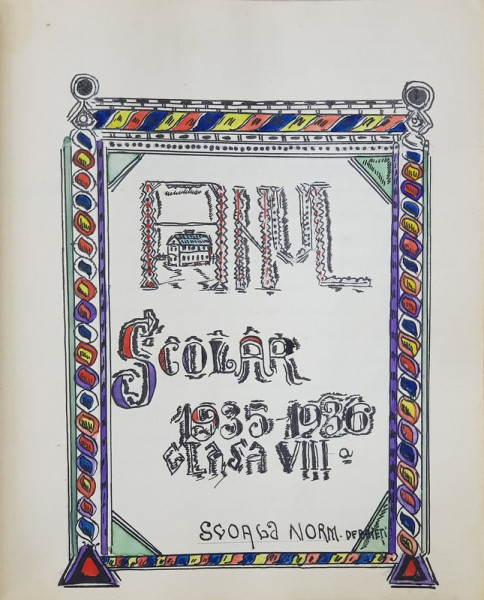 ANUL
SCOLAR
1935-1936
CLASA VIII a
ȘCOALA NORM. DE BĂIEȚI